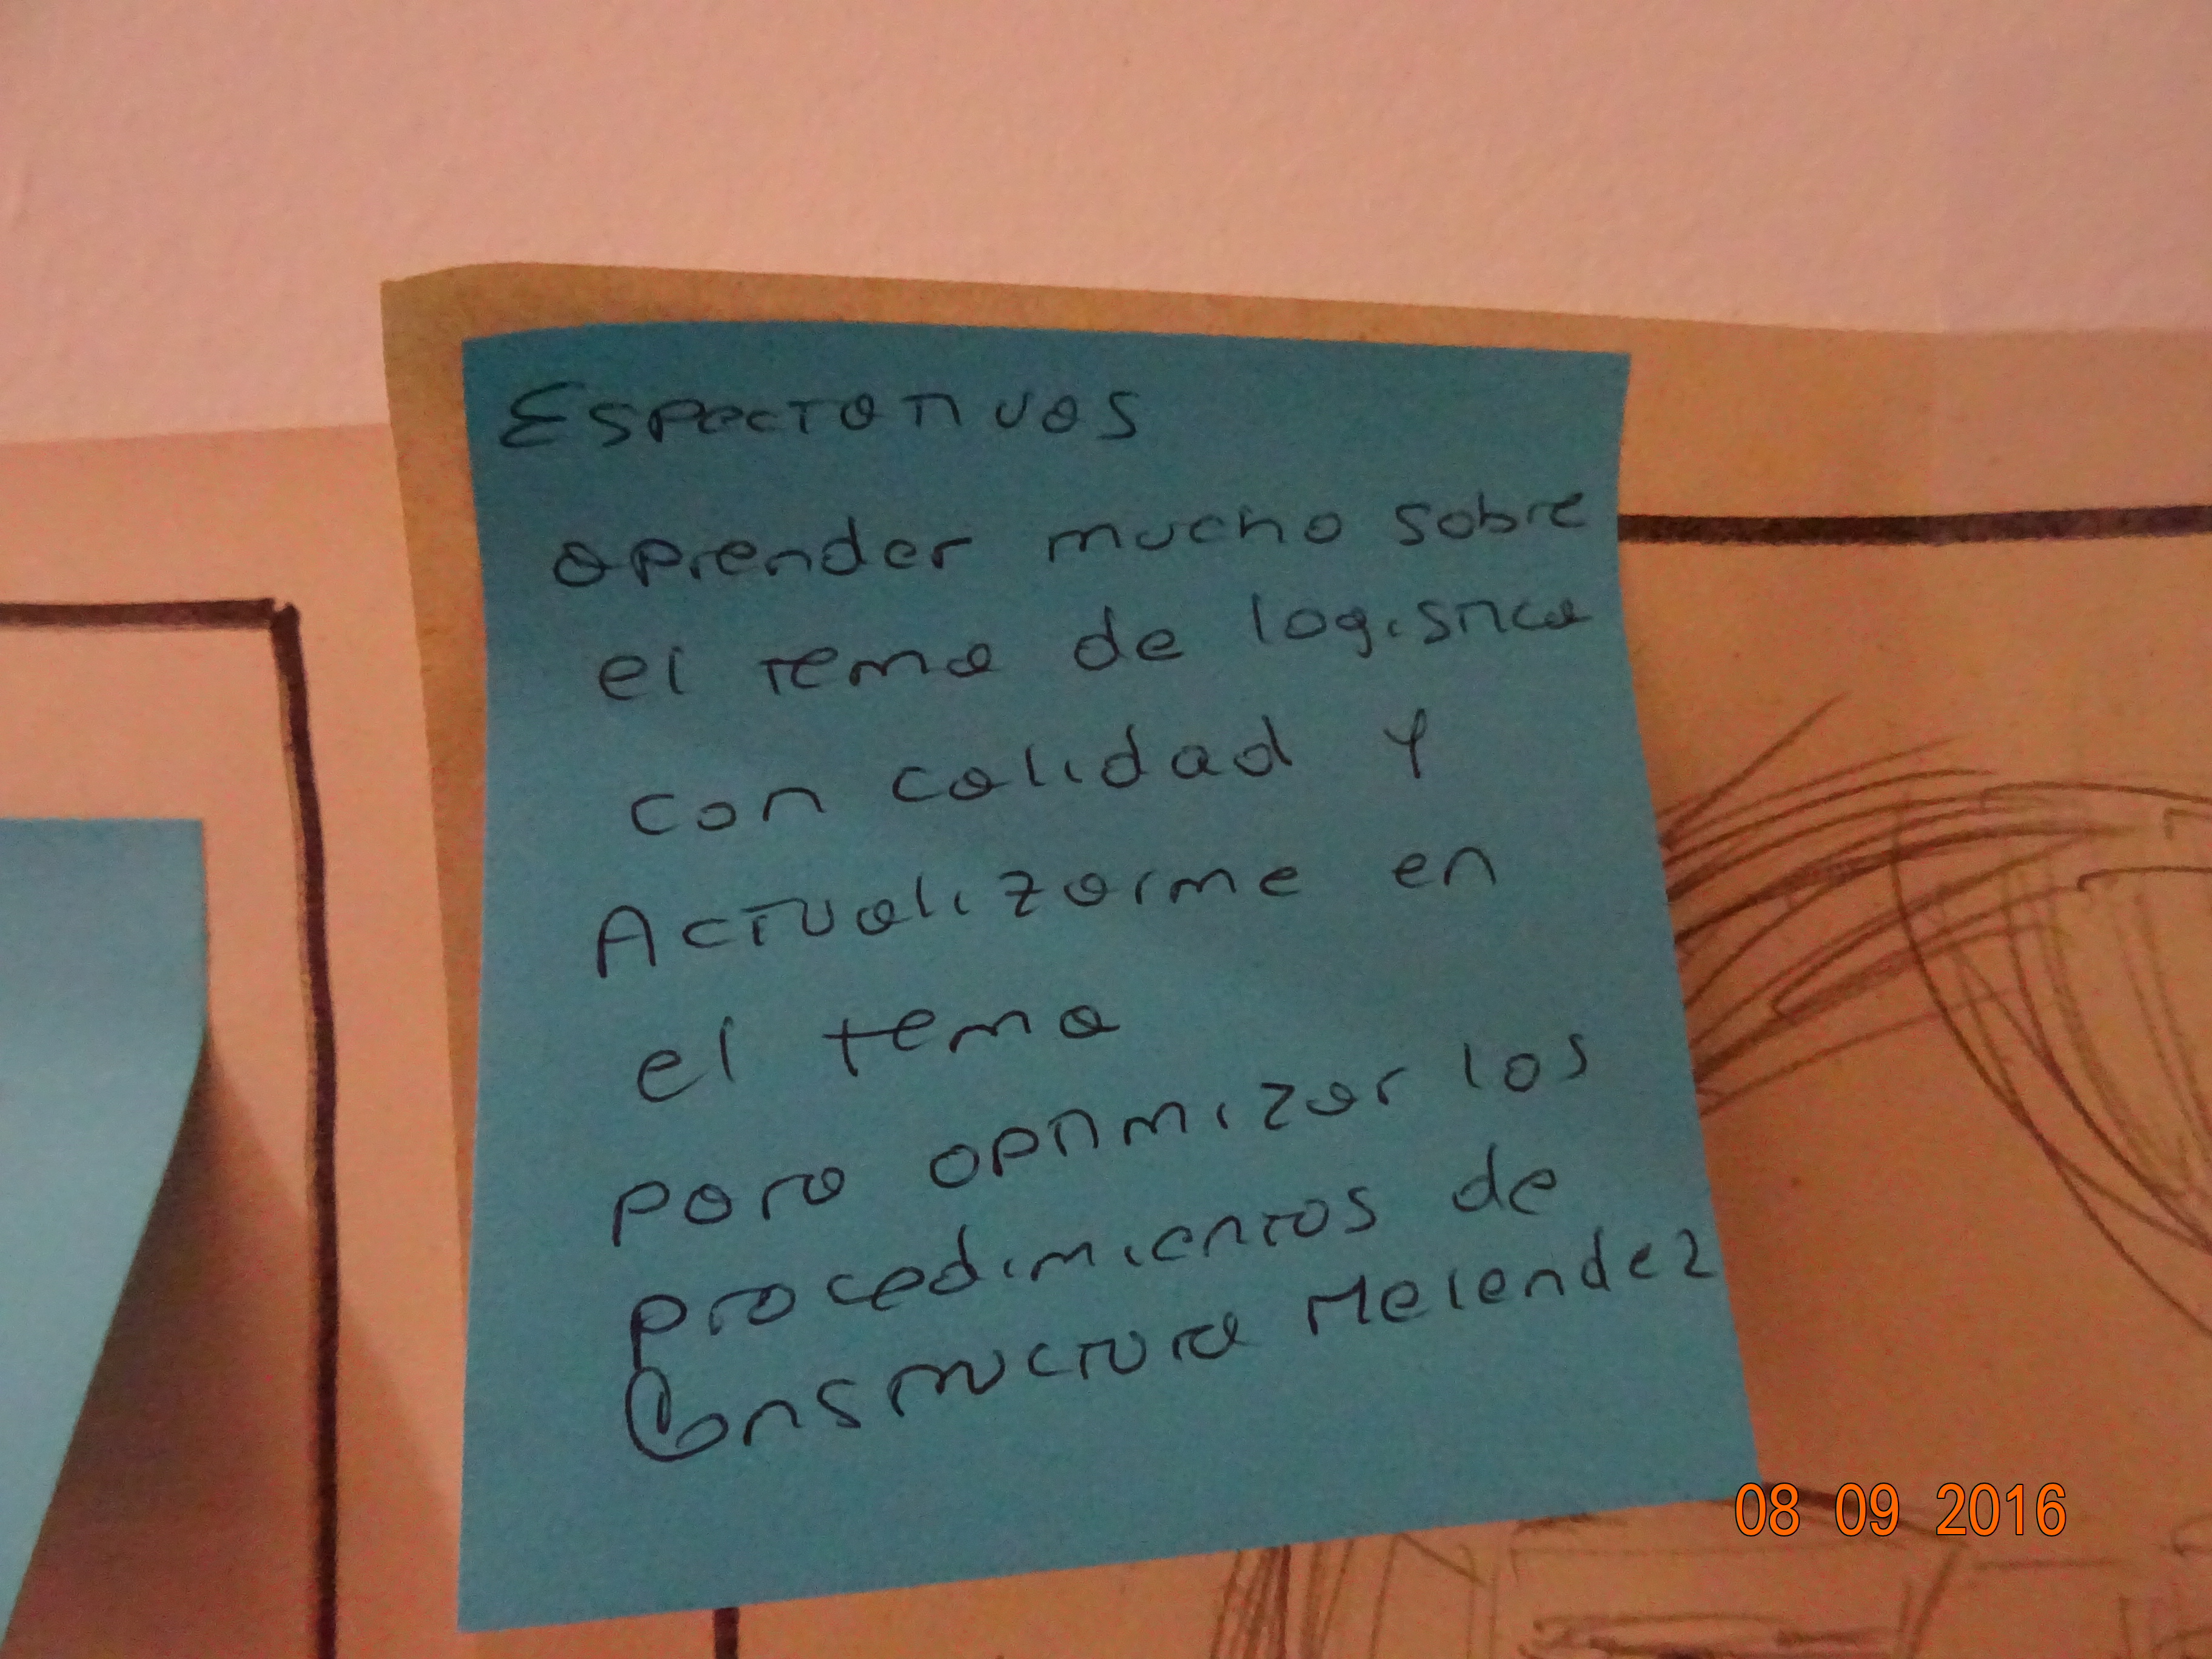 Espectativas
aprender mucho sobre
el tema de logistica
con calidad y
Actualizarme en
el tema
para optimizar los
procedimientos de
Constructora Melendez
08 09 2016